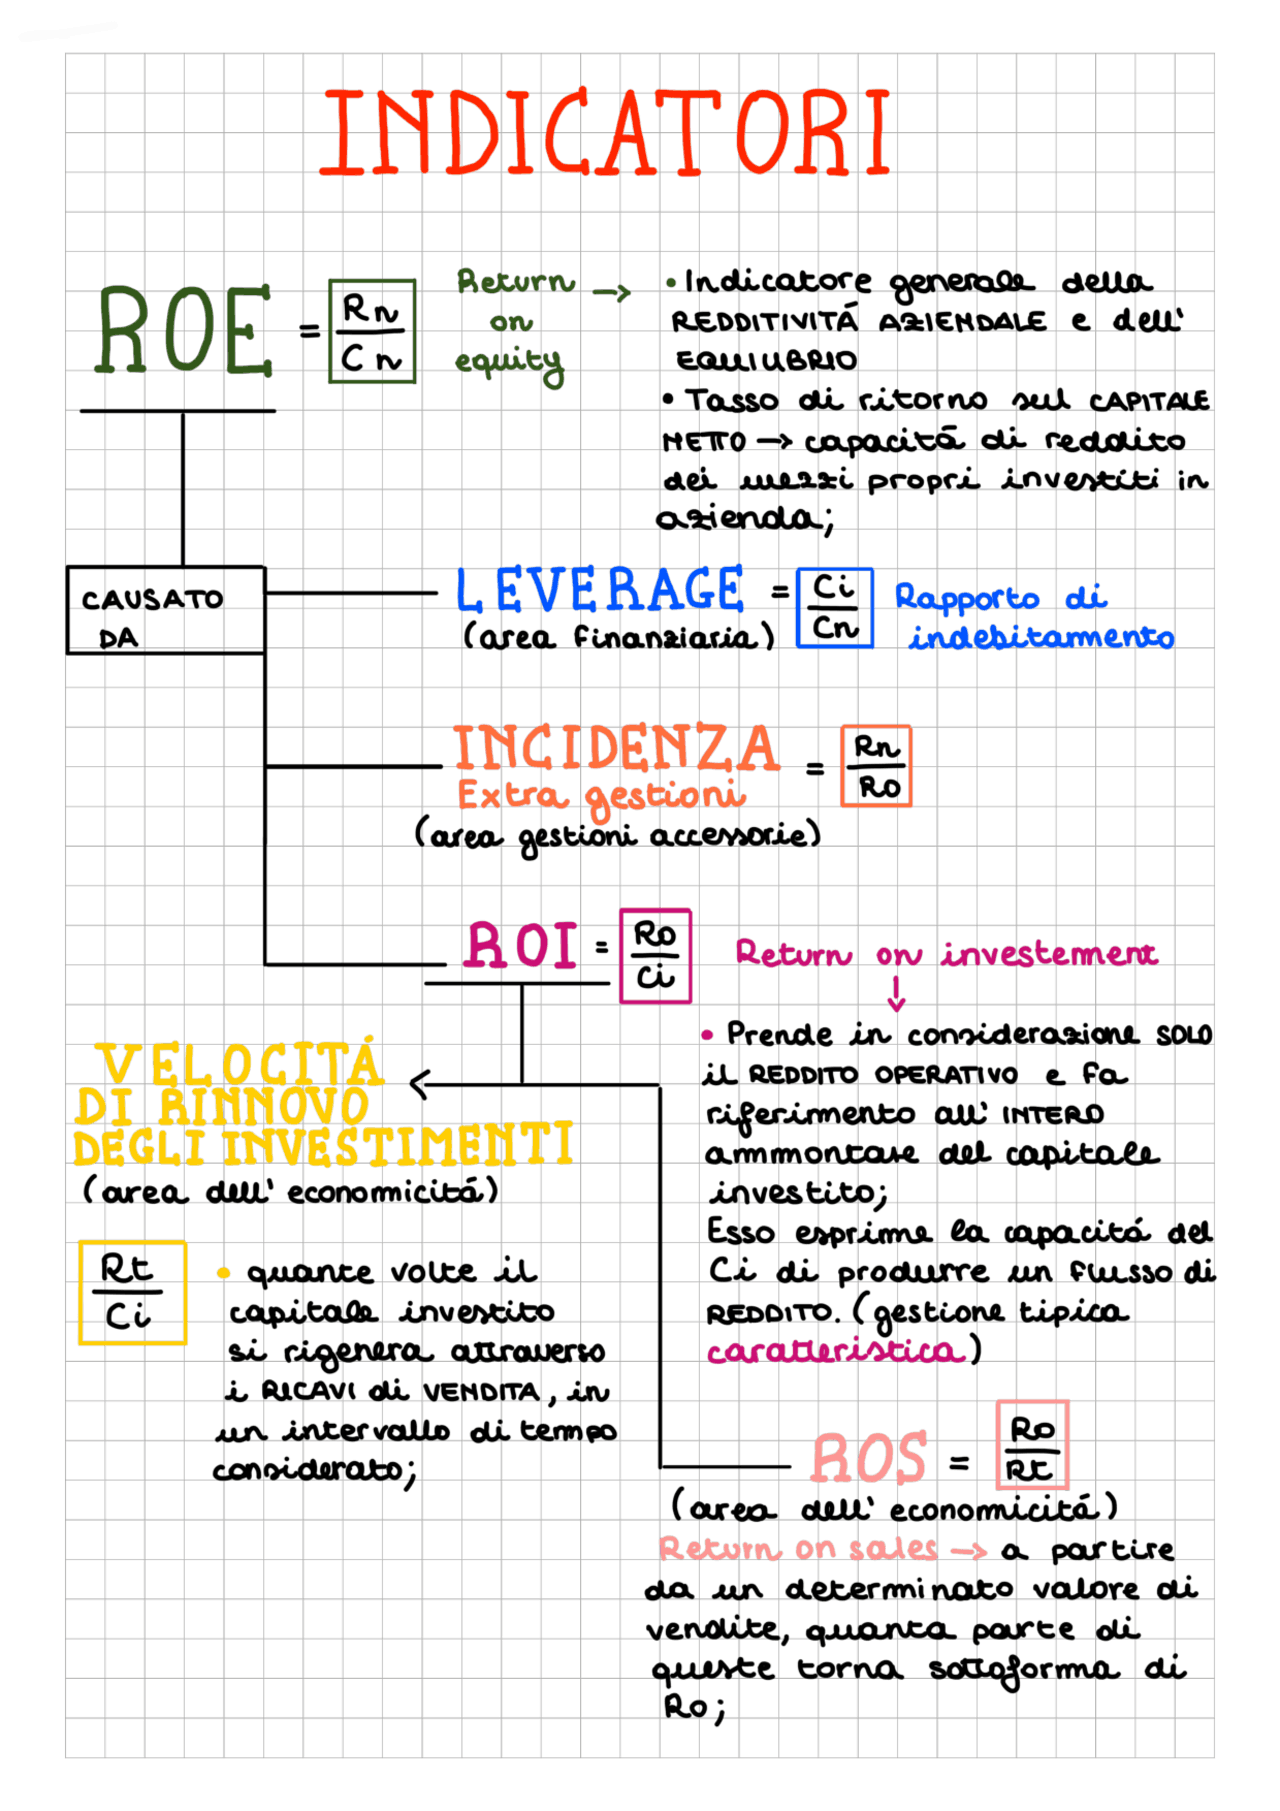 INDICATORI
ROE = Rn
Cn
Return
on
equity
→ • Indicatore generale della
REDDITIVITÁ AZIENDALE e dell'
EQUILIBRIO
• Tasso di ritorno sul CAPITALE
NETTO → capacitá di reddito
dei mezzi propri investiti in
azienda;
CAUSATO
DA
LEVERAGE = Ci
Cn
(area finanziaria)
Rapporto di
indebitamento
INCIDENZA
Extra gestioni
= Rn
Ro
(area gestioni accessorie)
ROI = Ro
Ci
Return on investement
↓
• Prende in considerazione SOLO
il REDDITO OPERATIVO e fa
riferimento all' INTERO
ammontare del capitale
investito;
Esso esprime la capacitá del
Ci di produrre un flusso di
REDDITO. (gestione tipica
caratteristica)
VELOCITÁ
DI RINNOVO
DEGLI INVESTIMENTI
(area dell' economicitá)
Rt
Ci
• quante volte il
capitale investito
si rigenera attraverso
i RICAVI di VENDITA, in
un intervallo di tempo
considerato;
ROS = Ro
Rt
(area dell' economicitá)
Return on sales → a partire
da un determinato valore di
vendite, quanta parte di
queste torna sottoforma di
Ro;